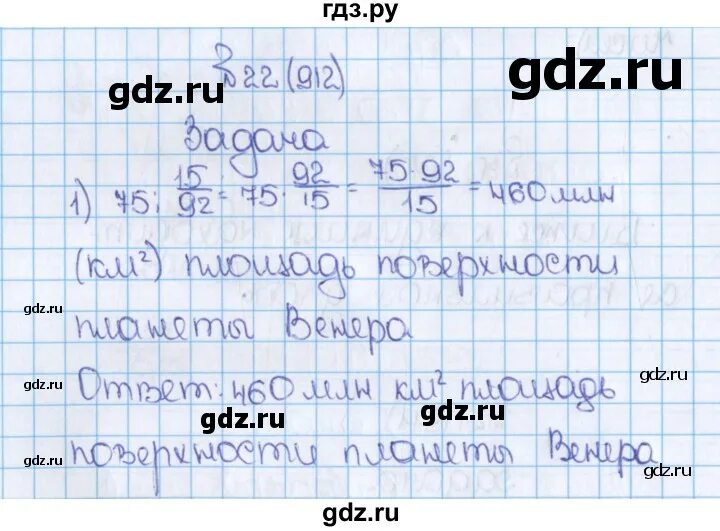 гдз.ру
gdz.ru
gdz.ru
№22 (912)
Задача
1) 75 : 15/92 = 75 · 92/15 = 75·92/15 = 460 млн
(км²) площадь поверхности
gdz.ru
gdz.ru
планеты Венера
gdz.ru
gdz.ru
Ответ: 460 млн км² площадь
gdz.ru
gdz.ru
поверхности планеты Венера
gdz.ru
gdz.ru
gdz.ru